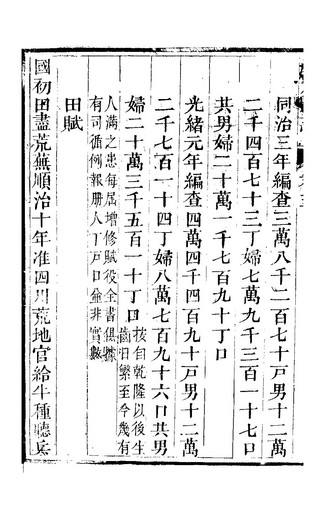 同治三年編查三萬八千二百七十戶男十二萬
二千四百七十三丁婦七萬九千三百一十七口
共男婦二十萬一千七百九十丁口
光緒元年編查四萬四千四百九十戶男十二萬
二千七百一十四丁婦八萬七百九十六口共男
婦二十萬三千五百一十丁口按自乾隆以後生
齒日繁至今幾有
人滿之患每屆增修賦役全書俱據
有司循例報册人丁戶口並非實數
田賦
國初田盡荒蕪順治十年准四川荒地官給牛種聽兵